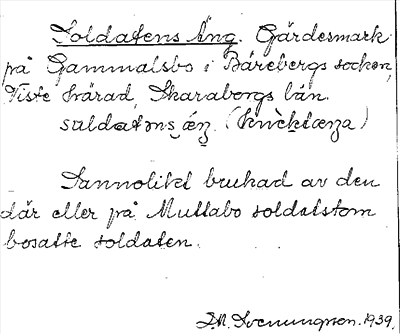 Soldatens Äng. Gärdesmark
på Gammalsbo i Bärebergs socken,
Viste härad, Skaraborgs län.
saldatəns æŋ. (knèktæŋa)
Sannolikt brukad av den
där eller på Mullabo soldatstom
bosatte soldaten.
Svenungson. 1939.